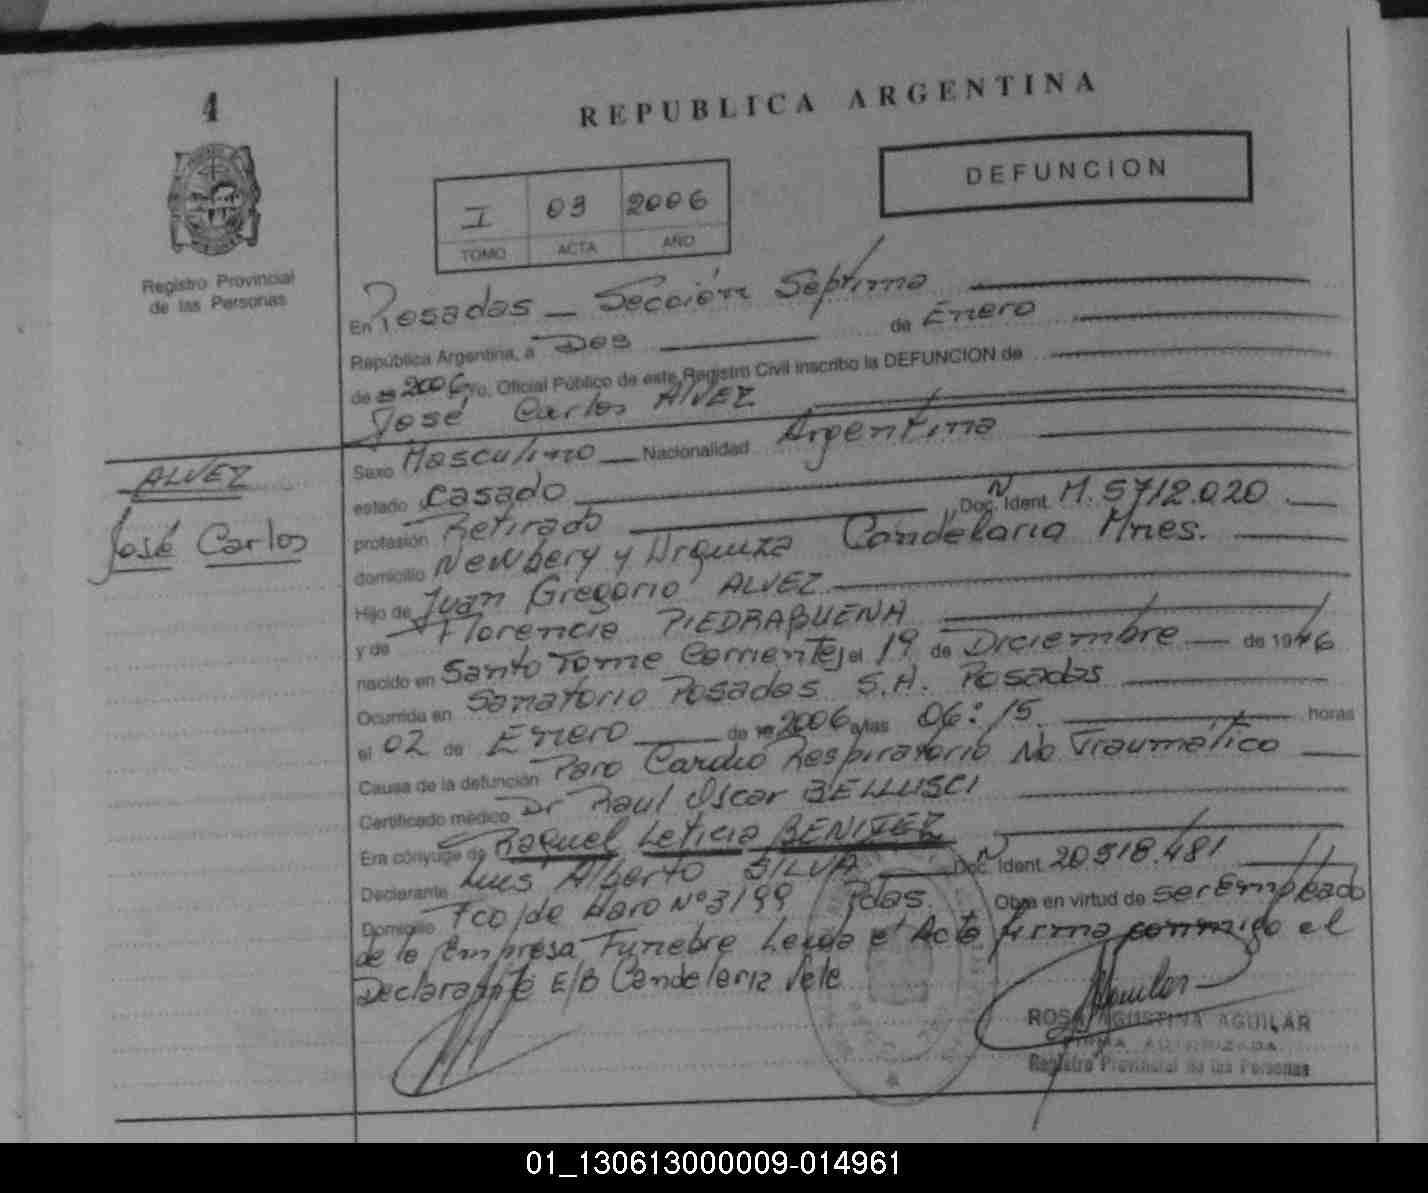 4
REPUBLICA ARGENTINA
DEFUNCION
I 03 2006
TOMO ACTA AÑO
Registro Provincial
de las Personas
En Posadas _ Sección Séptima
República Argentina, a Dos de Enero
de 2006 yo, Oficial Público de este Registro Civil inscribo la DEFUNCION de
José Carlos ALVEZ
Sexo Masculino Nacionalidad Argentina
ALVEZ
José Carlos
estado Casado
profesión Retirado Doc. Ident. M. 5712.020
domicilio Newbery y Urquiza Candelaria Mnes.
Hijo de Juan Gregorio ALVEZ
y de Florencia PIEDRABUENA
nacido en Santo Tome Corrientes el 19 de Diciembre de 1946
Ocurrida en Sanatorio Posadas S.A. Posadas
el 02 de Enero de 2006 a las 06:15 horas
Causa de la defunción Paro Cardio Respiratorio No Traumático
Certificado médico Dr Raul Oscar BELLUSCI
Era cónyuge de Raquel Leticia BENITEZ
Declarante Luis Alberto SILVA Doc. Ident. 20.518.481
Domicilio Fco/de Haro Nº 3199 Pdas. Obra en virtud de ser Empleado
de la Empresa Funebre Leida el Acta firma conmigo el
Declarante E/B Candelaria Vele
Aguilar
ROSA AGUSTINA AGUILAR
FIRMA AUTORIZADA
Registro Provincial de las Personas
01_130613000009-014961